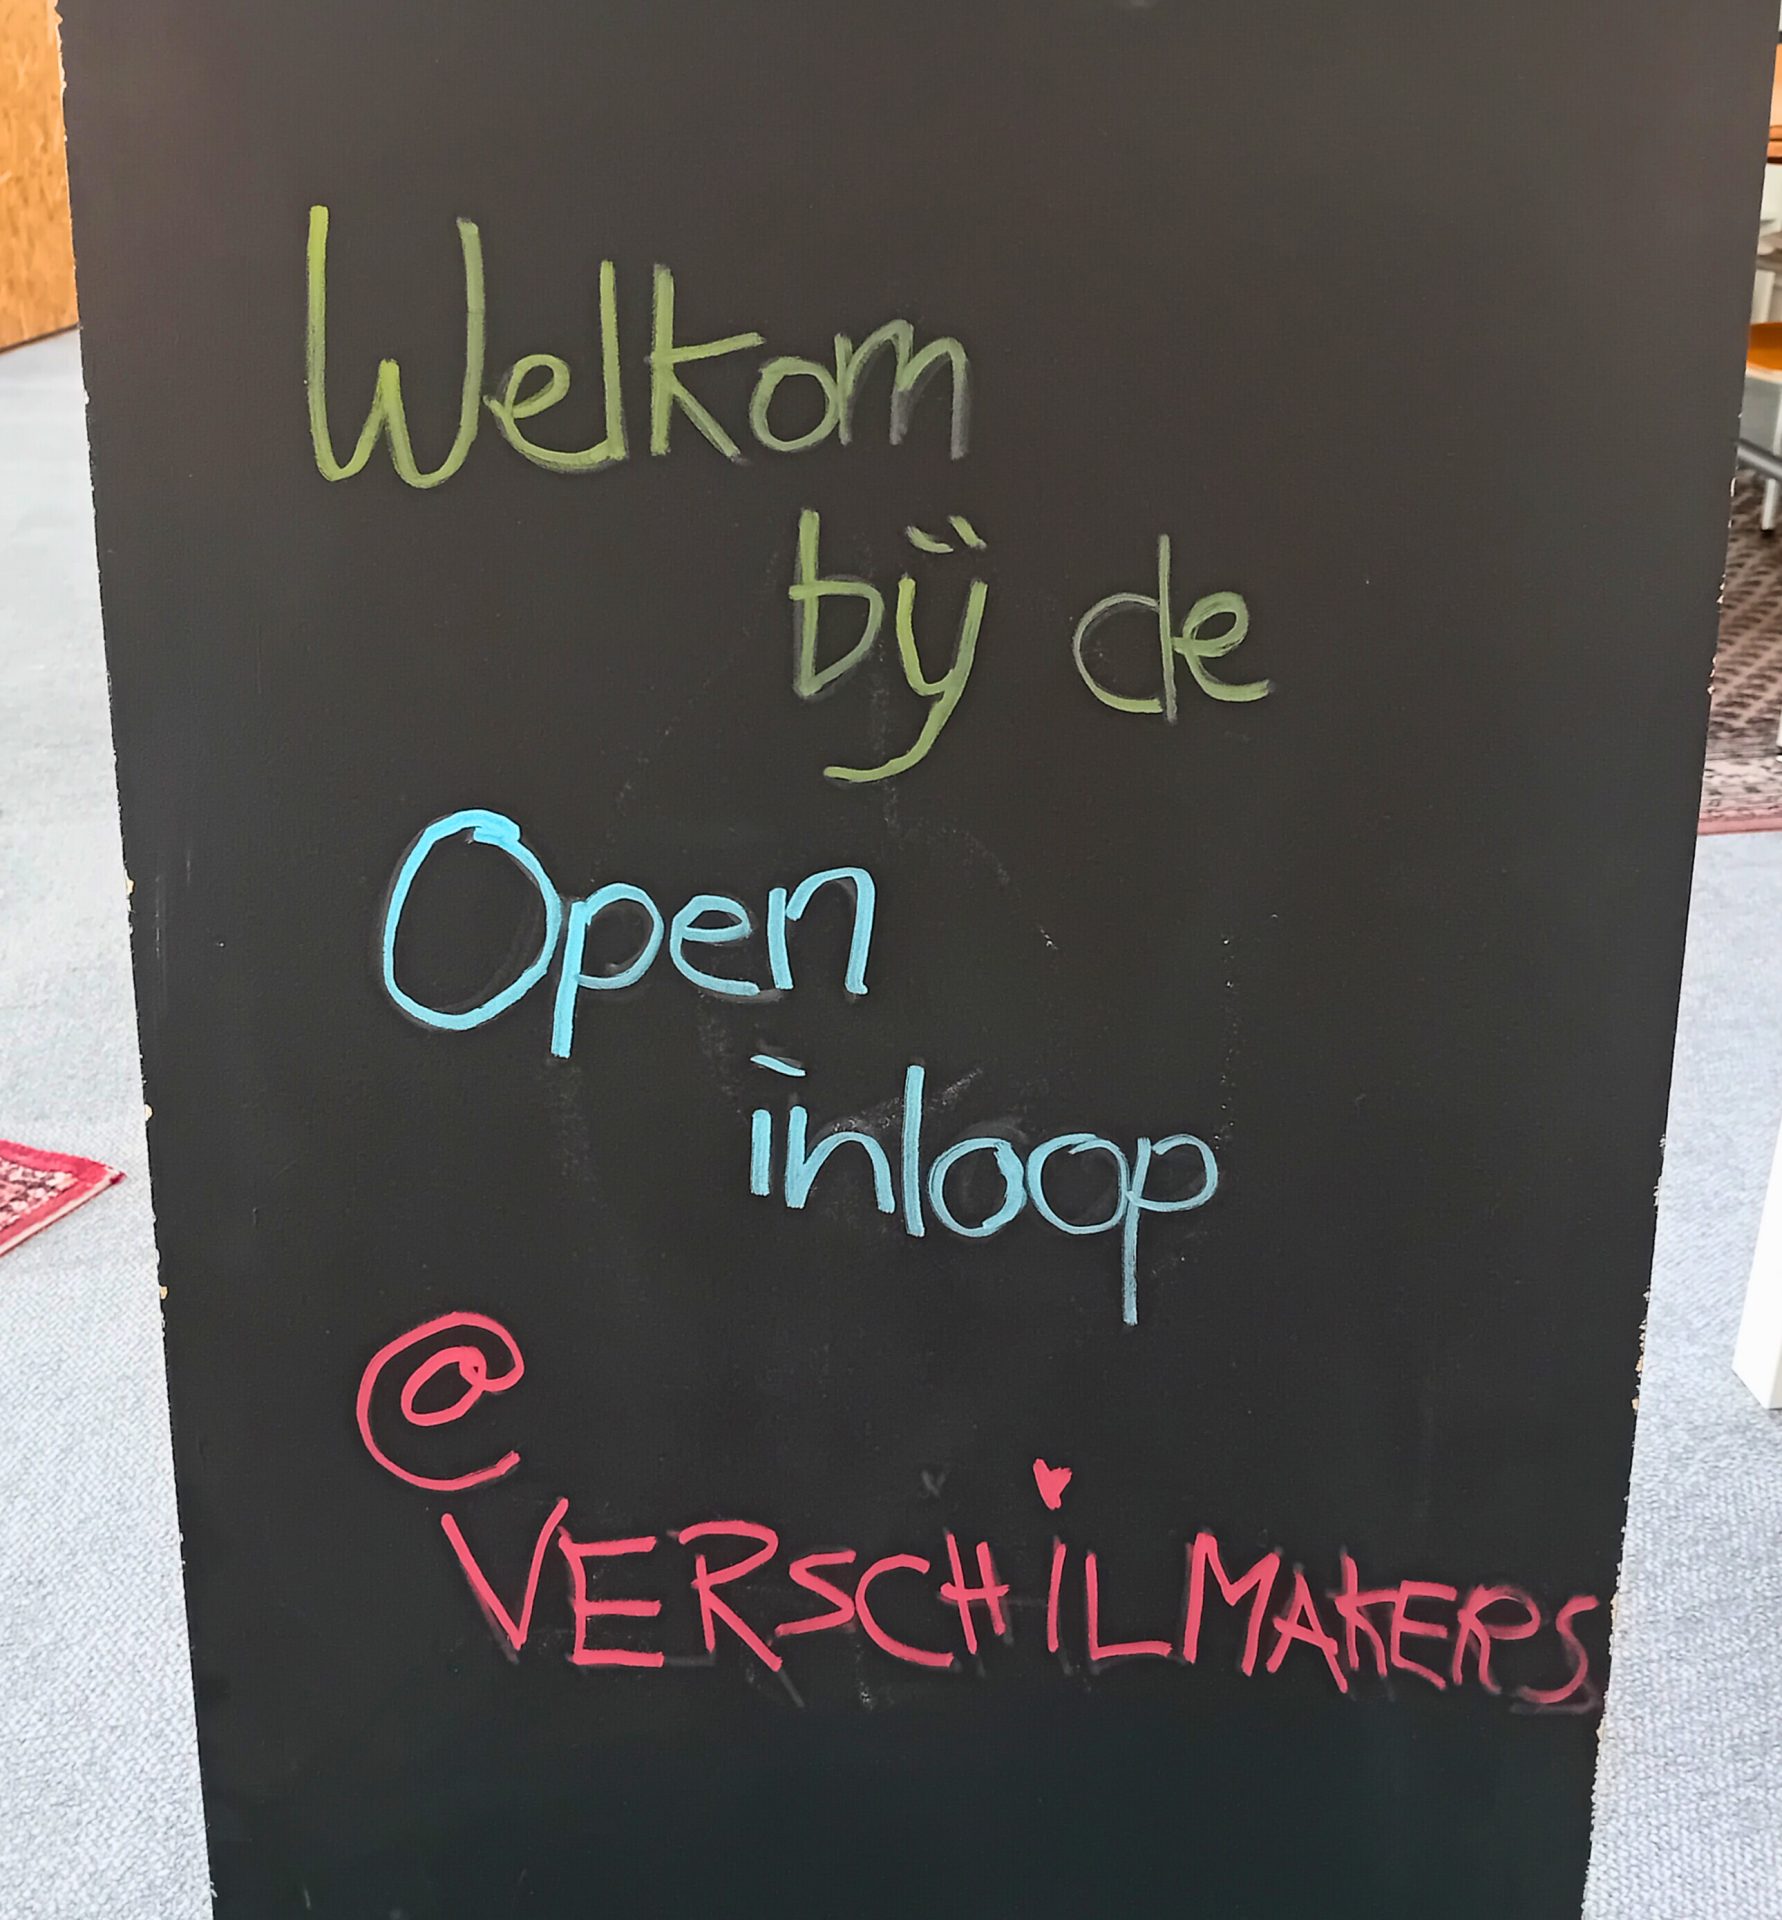 Welkom
bij de
Open
inloop
@
VERSCHiLMAKERS